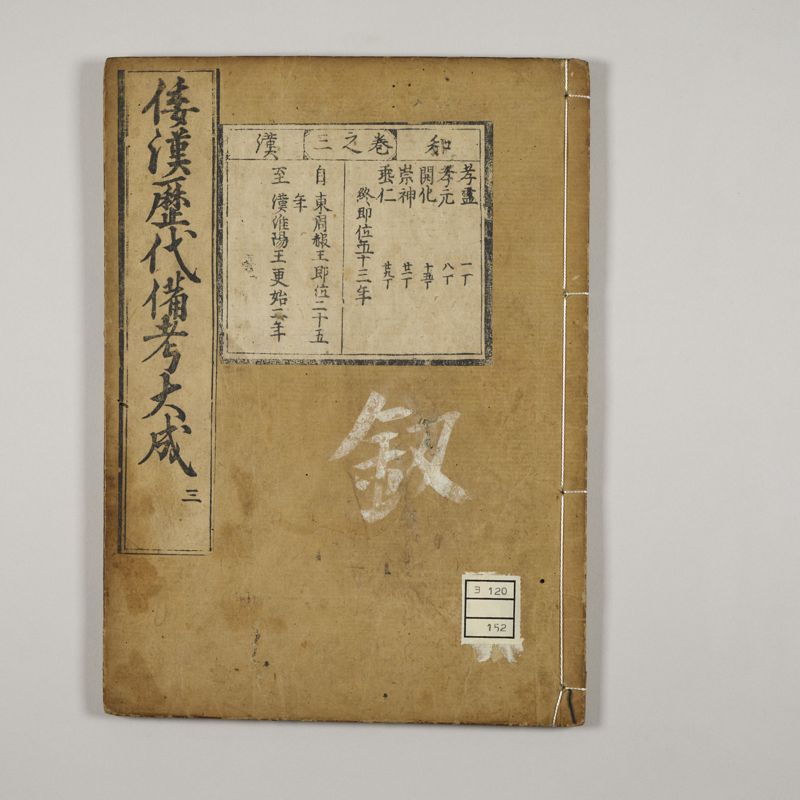 倭漢歴代備考大成 三
和
巻之三
漢
孝霊 一丁
孝元 八丁
開化 十五丁
崇神 廿一丁
垂仁 廿九丁
終即位五十三年
自 東周赧王即位二十五
年
至 漢淮陽王更始二年
釼
ヨ 120
152